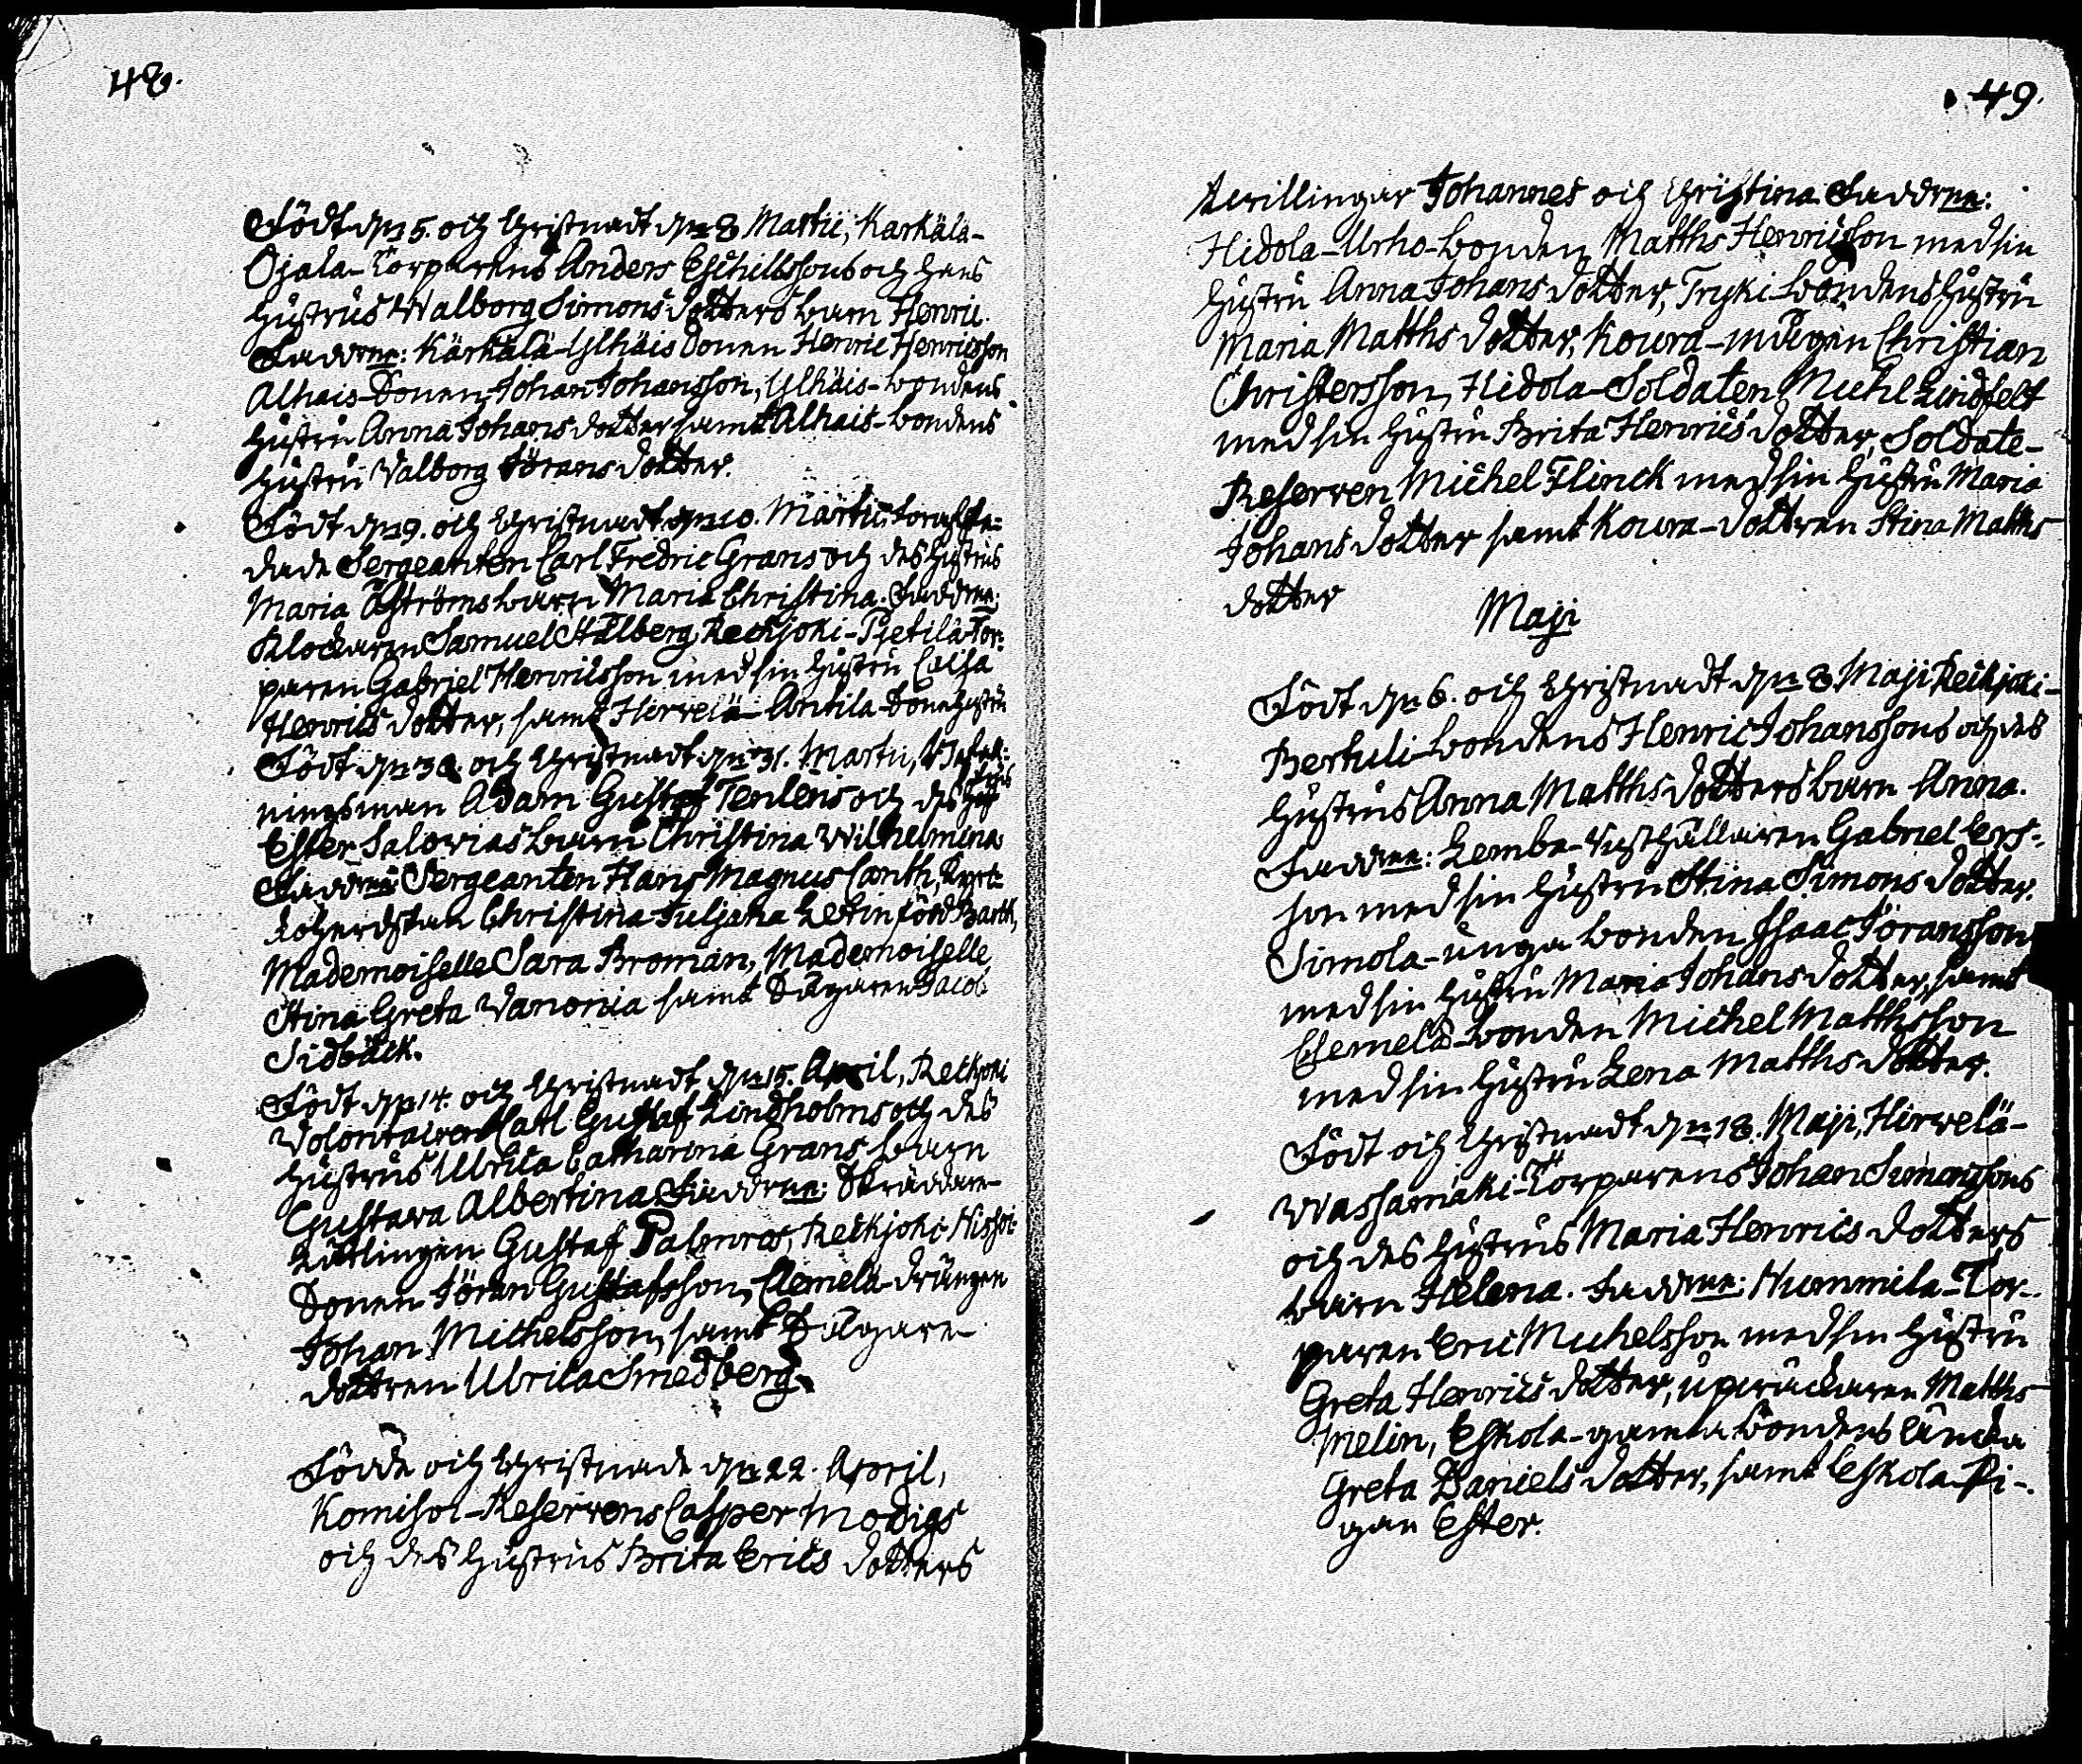 48.
Födt dn 5. och Christnadt dn 8 Martii, Karkäla-
Ojala-Torparens Anders Eschilssons och hans
hustrus Walborg Simons dotters barn Henric.
Faddrar: Kärkälä-Ylhäis Bonen Henric Henricsson
Alhais-Bonen Johan Johansson, Ylhäis-bondens
hustru Anna Johans dotter samt Alhais-bondens
hustru Valborg Jörans dotter.
Födt dn 9. och Christnadt dn 10. Martii, förafske-
dade Sergeanten Carl Fredric Grans och des hustrus
Maria Åströms barn Maria Christina. Faddrar:
Klockaren Samuel Stålberg, Reckjoki-Pjetilä-Tor-
paren Gabriel Henricsson med sin hustru Caisa
Henrics dotter, samt Hirvelä-Antila-Bone hustru
Födt dn 30. och Christnadt dn 31. Martii, Befall-
ningsman Adam Gustaf Tenlens och des hustrus
Ester Salovias barn Christina Wilhelmina
Faddrar Sergeanten Hans Magnus Canth, Kyrko-
herdskan Christina Juljana född Barth,
Mademoiselle Sara Broman, Mademoiselle
Stina Greta Vanonia samt Sågaren Jacob
Sidbäck.
Födt dn 14. och Christnadt dn 15. April, Reckjoki
Volontairen Carl Gustaf Lindholms och des
hustrus Ulrica Catharina Grans barn
Gustava Albertina Faddrar: Skräddare-
Lärlingen Gustaf Palmros, Reckjoki Nissoi
Bonen Jöran Gustafsson, Clemelä-drängen
Johan Michelsson, samt Sågare-
dottren Ulrica Smedberg.
Födde och Christnade dn 22. April,
Komisol-Reservens Casper Modigs
och des hustrus Brita Erics dotters
49.
twillingar Johannes och Christina. Faddrar:
Hidola-Urho-bonden Matths Henricsson med sin
hustru Anna Johans dotter, Tryki-bondens hustru
Maria Matths dotter, Koura-mågen Christian
Christersson, Hidola-Soldaten Michel Lindfelt
med sin hustru Brita Henrics dotter, Soldate-
Reserven Michel Flinck med sin hustru Maria
Johans dotter samt Koura-dottren Stina Matths
dotter
Maji
Födt dn 6. och Christnadt dn 8 Maji, Reckjoki-
Bertuli-bondens Henric Johanssons och des
hustrus Anna Matths dotters barn Anna.
Faddrar: Lembe-Rusthållaren Gabriel Ers-
son med sin hustru Stina Simons dotter.
Simola-unga bonden Isaac Göransson
med sin hustru Maria Johans dotter, samt
Clemelä-bonden Michel Matthsson
med sin hustru Lena Matths dotter.
Födt och Christnadt dn 18. Maji, Hirvelä-
Wassamäki-Torparens Johan Simonssons
och des hustrus Maria Henrics dotters
barn Helena. Faddrar: Nummila-Tor-
paren Eric Michelsson med sin hustru
Greta Henrics dotter, uproickaren Matths
Melin, Eskola-gamla bondens änka
Greta Daniels dotter, samt Eskola-Pi-
gan Ester.